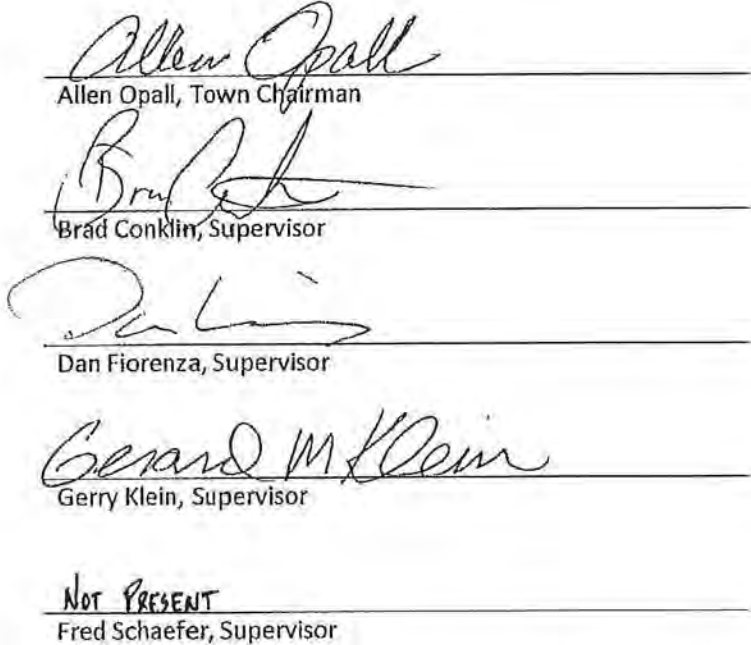 Allen Opall
Allen Opall, Town Chairman
Brad Conklin, Supervisor
Dan Fiorenza, Supervisor
Gerard M Klein
Gerry Klein, Supervisor
NOT PRESENT
Fred Schaefer, Supervisor